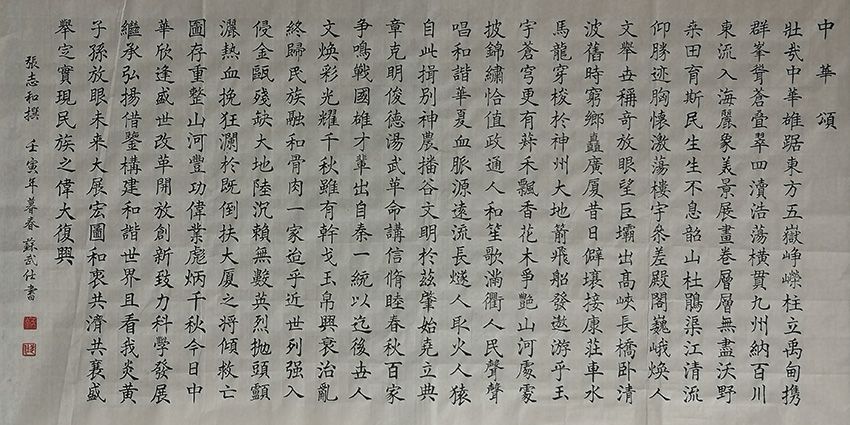 中華頌
壯哉中華雄踞東方五嶽崢嶸柱立禹甸携
群峯聳蒼疊翠四瀆浩荡横貫九州納百川
東流入海麗象美景展畫卷層層無盡沃野
桒田育斯民生生不息韶山杜鵑渠江清流
仰勝迹胸懷激荡樓宇叅差殿閣巍峨焕人
文舉世稱奇放眼望巨壩出高峽長橋卧清
波舊時窮鄉矗廣厦昔日僻壤接康莊車水
馬龍穿梭於神州大地箭飛船發遨游乎玉
宇蒼穹更有蔴禾飄香花木爭艷山河處處
披錦繡恰值政通人和笙歌滿衢人民聲聲
唱和諧華夏血脈源遠流長燧人取火人猿
自此揖别神農播谷文明於兹肇始堯立典
章克明俊德湯武革命講信脩睦春秋百家
争鳴戰國雄才輩出自秦一統以迄後世人
文焕彩光耀千秋雖有幹戈玉帛興衰治亂
終歸民族融和骨肉一家迨乎近世列强入
侵金甌殘缺大地陸沉賴無數英烈抛頭顱
灑热血挽狂瀾於既倒扶大厦之将傾救亡
圖存重整山河豐功偉業彪炳千秋今日中
華欣逢盛世改革開放創新致力科學發展
繼承弘揚借鑒構建和諧世界且看我炎黄
子孫放眼未来大展宏圖和衷共濟共襄盛
舉定實現民族之偉大復興
張志和撰 壬寅年暮春 蘇武仕書